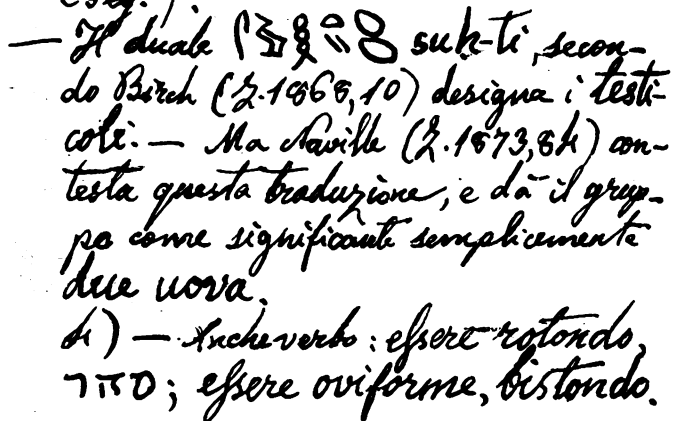 — Il duale suh-ti, secon-
do Birch (Z. 1868, 10) designa i testi-
coli. — Ma Naville (Z. 1873, 84) con-
testa questa traduzione, e dà il grup-
po come significante semplicemente
due uova.
4) — Anche verbo: eſsere rotondo,
סחר; eſsere oviforme, bistondo.